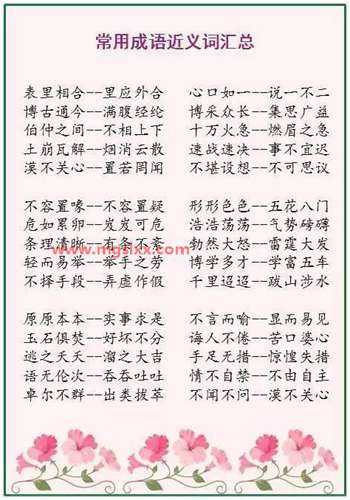 常用成语近义词汇总
表里相合--里应外合 心口如一--说一不二
博古通今--满腹经纶 博采众长--集思广益
伯仲之间--不相上下 十万火急--燃眉之急
土崩瓦解--烟消云散 速战速决--事不宜迟
漠不关心--置若罔闻 不堪设想--不可思议
不容置喙--不容置疑 形形色色--五花八门
危如累卵--岌岌可危 浩浩荡荡--气势磅礴
条理清晰--有条不紊 勃然大怒--雷霆大发
www.mgslxx.com
轻而易举--举手之劳 博学多才--学富五车
不择手段--弄虚作假 千里迢迢--跋山涉水
原原本本--实事求是 不言而喻--显而易见
玉石俱焚--好坏不分 诲人不倦--苦口婆心
逃之夭夭--溜之大吉 手足无措--惊惶失措
语无伦次--吞吞吐吐 情不自禁--不由自主
卓尔不群--出类拔萃 不闻不问--漠不关心